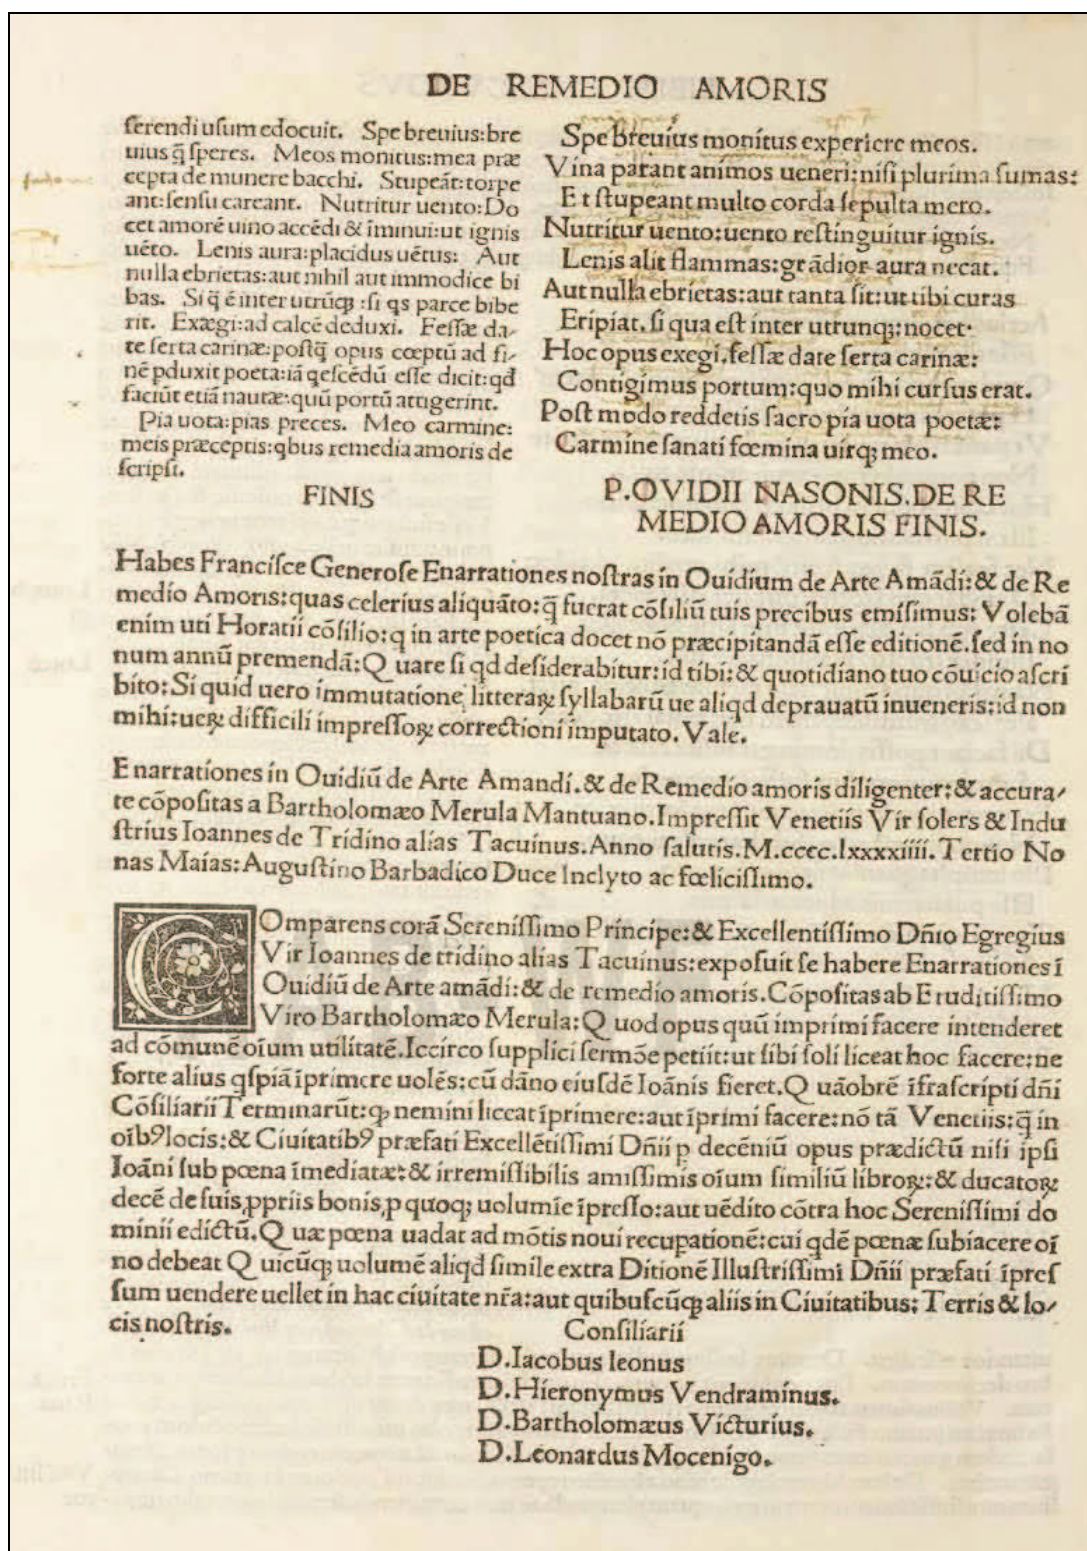 DE REMEDIO AMORIS
ferendi usum edocuit. Spe breuius:bre
uius q̃ speres. Meos monitus:mea præ
cepta de munere bacchi. Stupeãt:torpe
ant:sensu careant. Nutritur uento:Do
cet amorẽ uino accẽdi & ĩminui:ut ignis
uẽto. Lenis aura:placidus uẽtus: Aut
nulla ebrietas:aut nihil aut immodice bi
bas. Si q̃ ẽ inter utrũq; :si qs parce bibe
rit. Exægi:ad calcẽ deduxi. Fessæ da-
te serta carinæ:postq̃ opus cœptũ ad fi-
nẽ pduxit poeta:iã qescẽdũ esse dicit:qđ
faciũt etiã nautæ:quũ portũ attigerint.
Pia uota:pias preces. Meo carmine:
meis præceptis:qbus remedia amoris de
scripsi.
FINIS
Spe breuius monitus experiere meos.
Vina parant animos ueneri:nisi plurima sumas:
Et stupeant multo corda sepulta mero.
Nutritur uento:uento restinguitur ignis.
Lenis alit flammas:grãdior aura necat.
Aut nulla ebrietas:aut tanta sit:ut tibi curas
Eripiat. si qua est inter utrunq;:nocet.
Hoc opus exegi.fessæ date serta carinæ:
Contigimus portum:quo mihi cursus erat.
Post modo reddetis sacro pia uota poetæ:
Carmine sanati fœmina uirq; meo.
P.OVIDII NASONIS.DE RE
MEDIO AMORIS FINIS.
Habes Francisce Generose Enarrationes nostras in Ouidium de Arte Amãdi:& de Re
medio Amoris:quas celerius aliquãto:q̃ fuerat cõsiliũ tuis precibus emisimus: Volebã
enim uti Horatii cõsilio:q in arte poetica docet nõ præcipitandã esse editionẽ.sed in no
num annũ premendã:Quare si qd desiderabitur:id tibi:& quotidiano tuo cõuicio ascri
bito:Si quid uero immutatione litteraꝝ syllabarũ ue aliqd deprauatũ inueneris:id non
mihi:ueꝝ difficili impressoꝝ correctioni imputato.Vale.
Enarrationes in Ouidiũ de Arte Amandi.& de Remedio amoris diligenter:& accura-
te cõpositas a Bartholomæo Merula Mantuano.Impressit Venetiis Vir solers & Indu
strius Ioannes de Tridino alias Tacuinus.Anno salutis.M.cccc.lxxxxiiii.Tertio No
nas Maias:Augustino Barbadico Duce Inclyto ac fœlicissimo.
Comparens corã Serenissimo Principe:& Excellentissimo Dñio Egregius
Vir Ioannes de tridino alias Tacuinus:exposuit se habere Enarrationes ĩ
Ouidiũ de Arte amãdi:& de remedio amoris.Cõpositas ab Eruditissimo
Viro Bartholomæo Merula:Quod opus quũ imprimi facere intenderet
ad cõmunẽ oĩum utilitatẽ.Iccirco supplici sermõe petiit:ut sibi soli liceat hoc facere:ne
forte alius qspiã ĩprimere uolẽs:cũ dãno eiusdẽ Ioãnis fieret.Quãobrẽ ĩfrascripti dñi
Cõsiliarii Terminarũt:ꝙ nemini liceat ĩprimere:aut ĩprimi facere:nõ tã Venetiis:q̃ in
oĩbꝰ locis:& Ciuitatibꝰ præfati Excellẽtissimi Dñii p decẽniũ opus prædictũ nisi ipsi
Ioãni sub pœna ĩmediatæ:& irremissibilis amissimis oĩum similiũ libroꝝ:& ducatoꝝ
decẽ de suis,ppriis bonis,p quoq; uolumĩe ĩpresso:aut uẽdito cõtra hoc Serenissimi do
minii edictũ.Quæ pœna uadat ad mõtis noui recupationẽ:cui qdẽ pœnæ subiacere oĩ
no debeat Quicũq; uolumẽ aliqd simile extra Ditionẽ Illustrissimi Dñii præfati ĩpres
sum uendere uellet in hac ciuitate nr̃a:aut quibuscũq; aliis in Ciuitatibus: Terris & lo-
cis nostris.
Consiliarii
D.Iacobus leonus
D.Hieronymus Vendraminus.
D.Bartholomæus Victurius.
D.Leonardus Mocenigo.